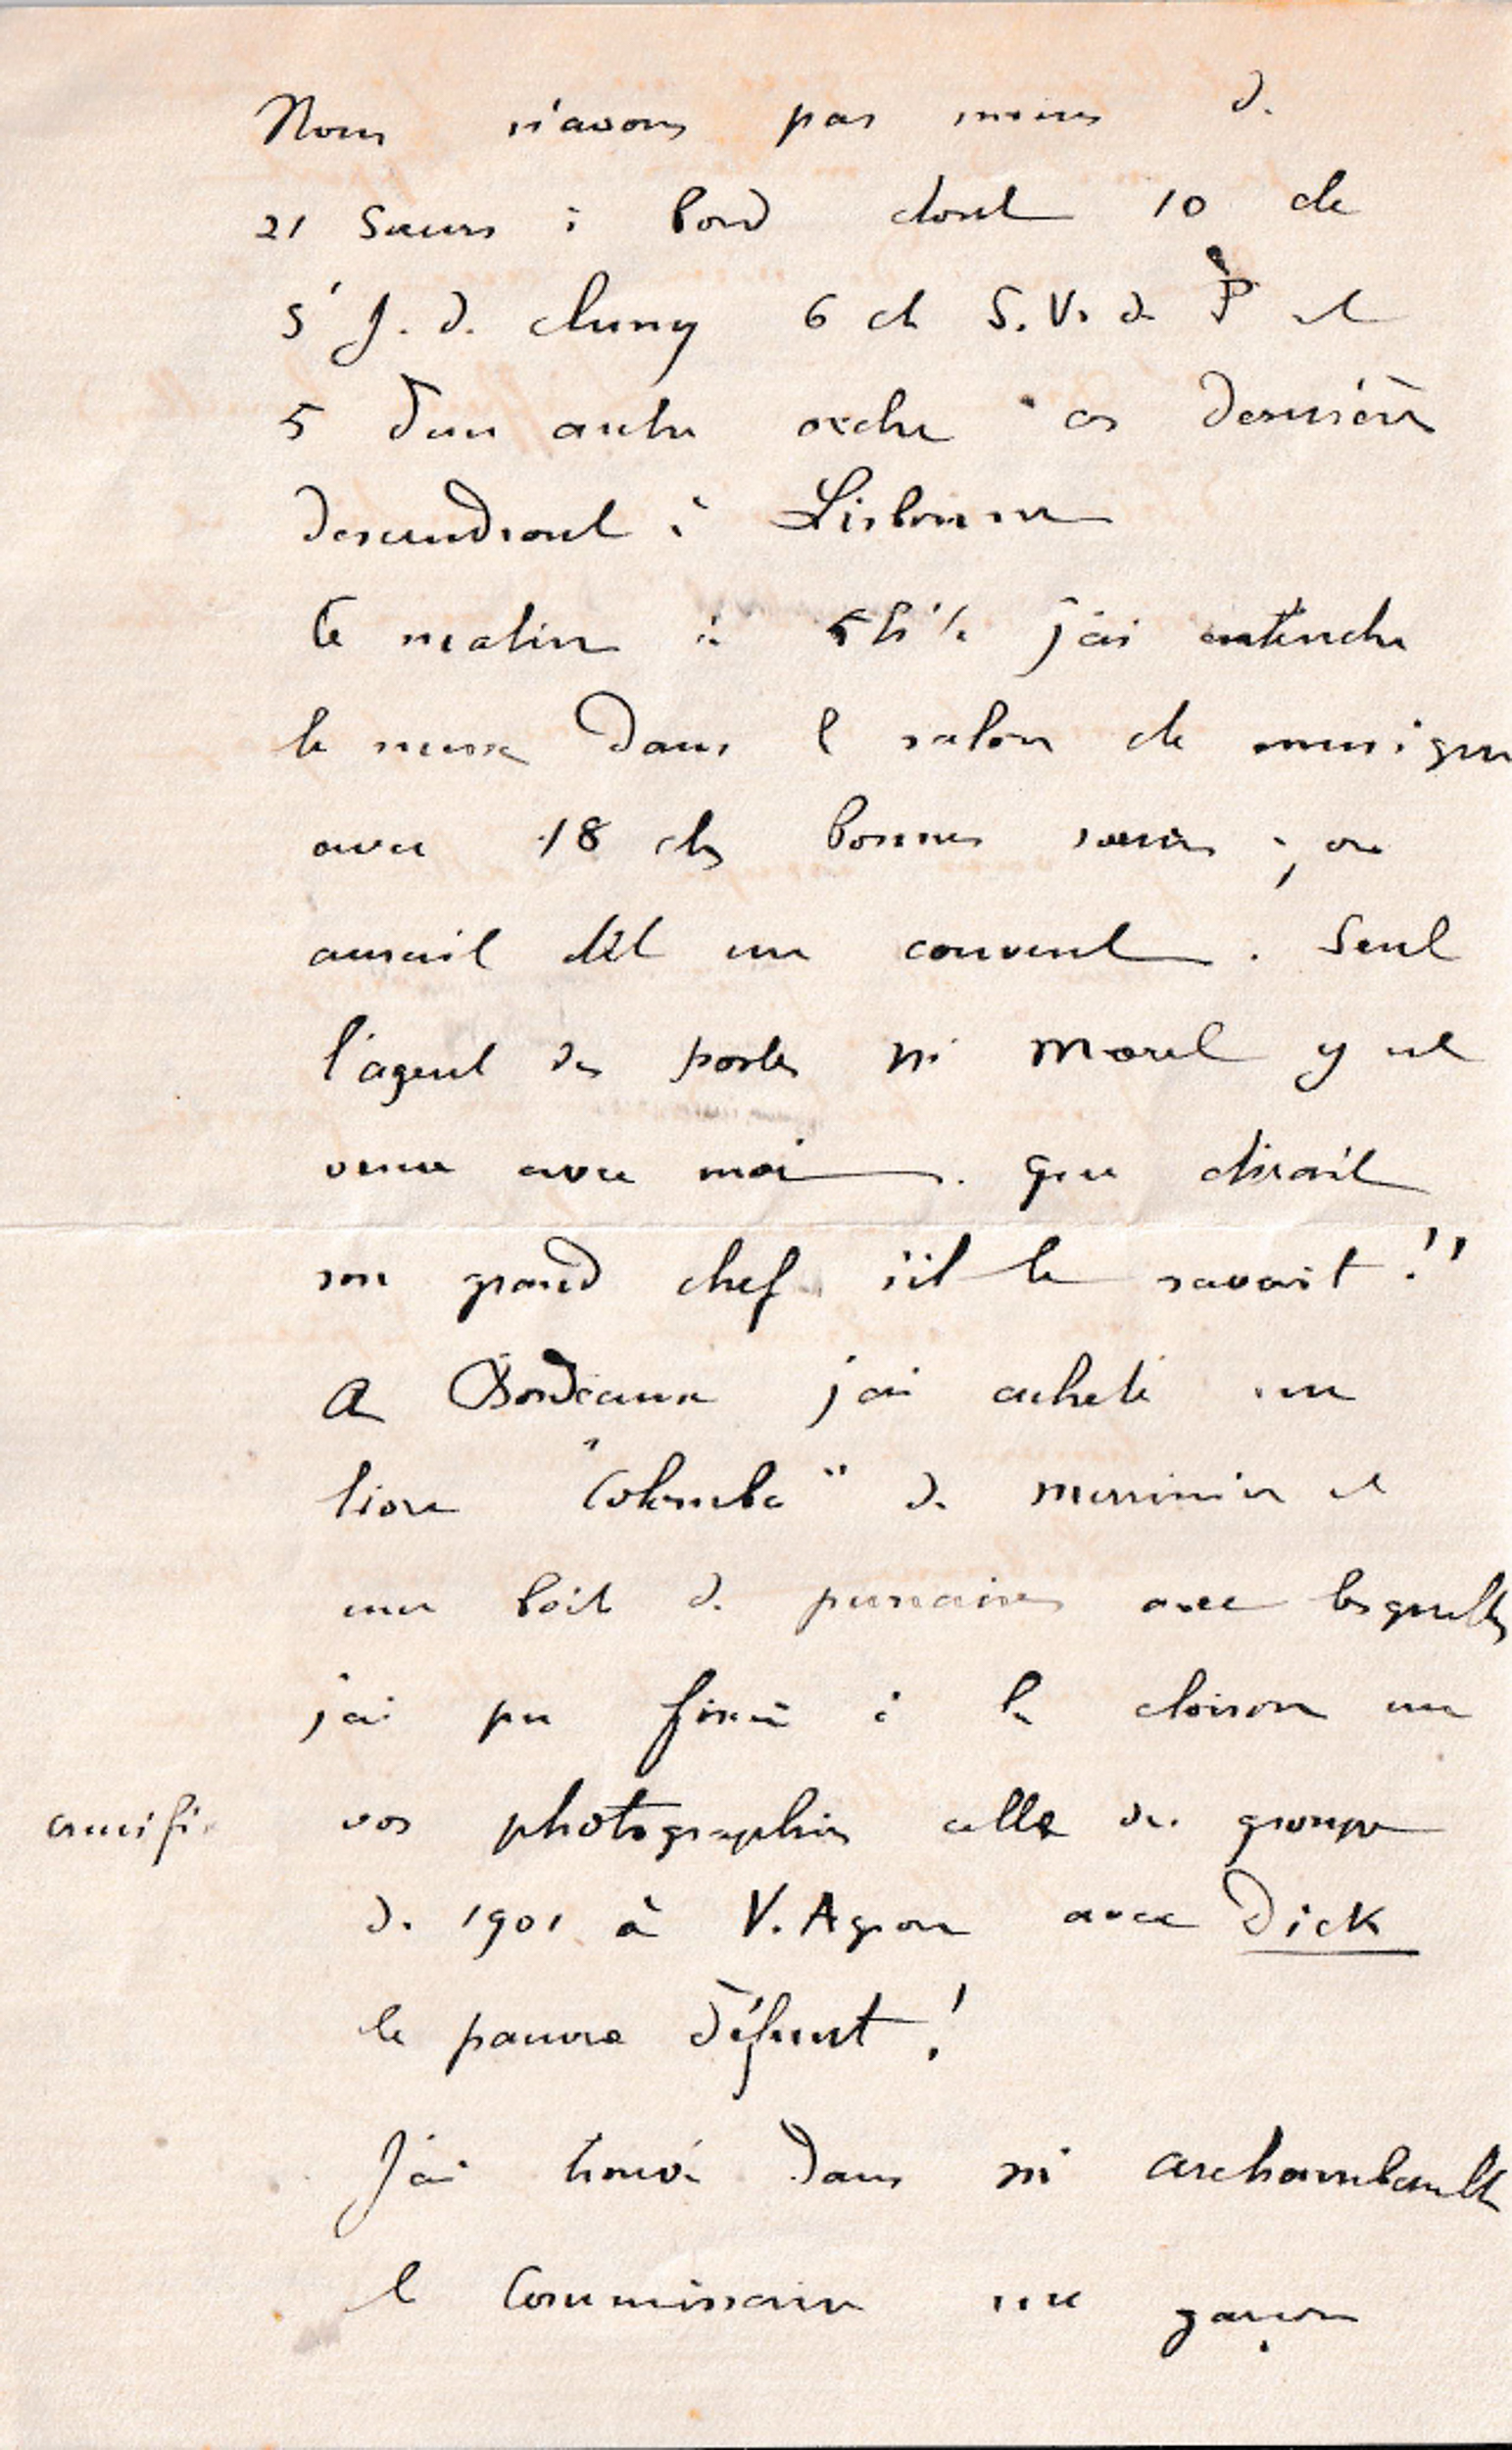 Nous n'avons pas moins de
21 Sœurs à bord dont 10 de
St J. de Cluny 6 de S. V. de P et
5 d'un autre ordre ces dernières
descendront à Lisbonne
Ce matin à 5h½ j'ai entendu
la messe dans le salon de musique
avec 18 des bonnes sœurs ; on
aurait dit un couvent. Seul
l'agent des postes Mr Morel y est
venu avec moi. Que dirait
son grand chef s'il le savait !!
A Bordeaux j'ai acheté un
livre "Colomba" de Merrimée et
une boîte de punaises avec lesquelles
j'ai pu fixer à la cloison un
crucifix vos photographies celle du groupe
de 1901 à V. Agron avec Dick
le pauvre défunt !
J'ai trouvé dans Mr Archambault
le Commissaire un garçon